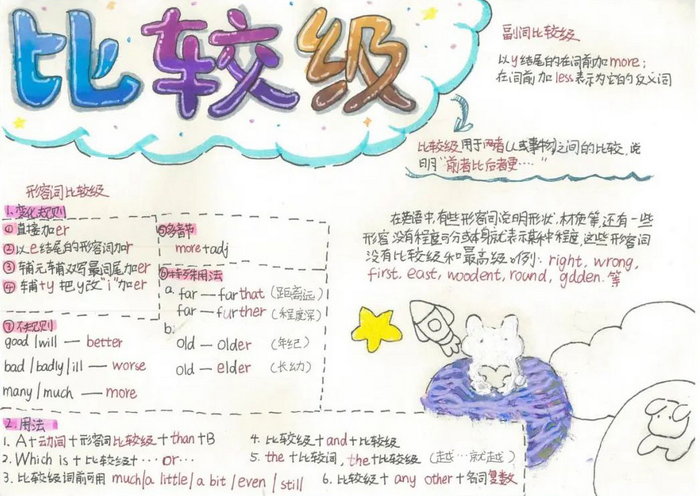 比较级
副词比较级
以y结尾的在词前加more；
在词前加less表示为它的反义词
比较级用于两者(人或事物)之间的比较，说
明"前者比后者更……"
形容词比较级
1.变化规则
①直接加er
②以e结尾的形容词加r
③辅元辅双写最词尾加er
④辅+y 把y改"i"加er
⑤多音节
more+adj
⑥特殊用法
a.
far — farthat (距离远)
far — further (程度深)
b.
old — older (年纪)
old — elder (长幼)
⑦不规则
good/will — better
bad/badly/ill — worse
many/much — more
在英语中，有些形容词说明形状、材质等，还有一些
形容 没有程度可分或本身就表示某种程度，这些形容词
没有比较级和最高级。例：right, wrong,
first, east, woodent, round, gdden. 等
2.用法
1. A+动词+形容词比较级+than+B
2. Which is +比较级+…or…
3. 比较级词前可用 much/a little/a bit/even/still
4. 比较级+and+比较级
5. the+比较词，the+比较级 (越…就越)
6. 比较级+ any other +名词复数